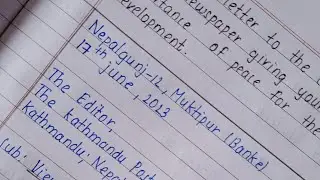 letter to the
newspaper giving your
tance of peace for the
evelopment.
Nepalgunj-12, Muktipur (Banke)
17th june, 2023
The Editor,
The Kathmandu Post
Kathmandu, Nepal
Sub: Vie